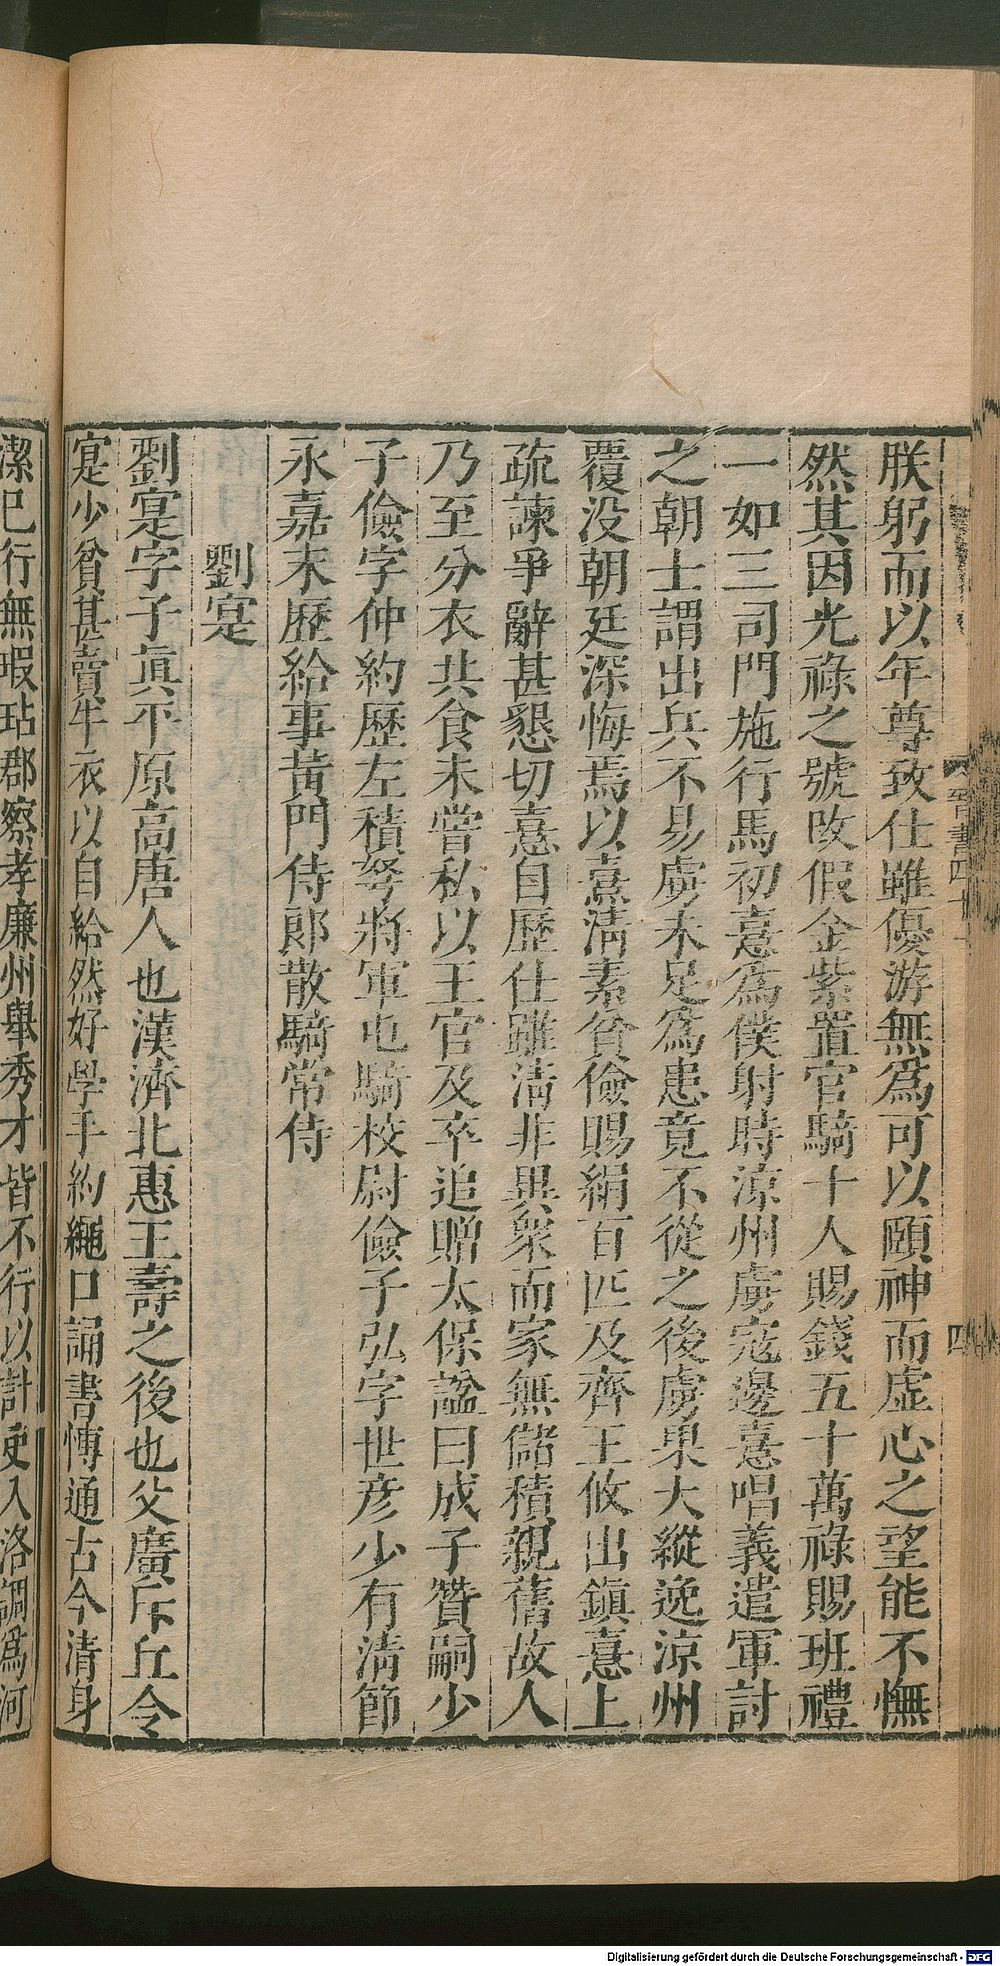 朕躬而以年尊致仕雖優游無爲可以頤神而虚心之望能不憮
然其因光祿之號改假金紫置官騎十人賜錢五十萬祿賜班禮
一如三司門施行馬初憙爲僕射時涼州虜寇邊憙唱義遣軍討
之朝士謂出兵不易虜未足爲患竟不從之後虜果大縱逸涼州
覆没朝廷深悔焉以憙清素貧儉賜絹百匹及齊王攸出鎮憙上
疏諫爭辭甚懇切憙自歷仕雖清非異衆而家無儲積親舊故人
乃至分衣共食未嘗私以王官及卒追贈太保諡曰成子贊嗣少
子儉字仲約歷左積弩將軍屯騎校尉儉子弘字世彦少有清節
永嘉末歷給事黄門侍郎散騎常侍
劉寔
劉寔字子眞平原高唐人也漢濟北惠王壽之後也父廣斥丘令
寔少貧甚賣牛衣以自給然好學手約繩口誦書博通古今清身
潔已行無瑕玷郡察孝廉州舉秀才皆不行以計吏入洛調爲河
晉書四十一
四
Digitalisierung gefördert durch die Deutsche Forschungsgemeinschaft - DFG